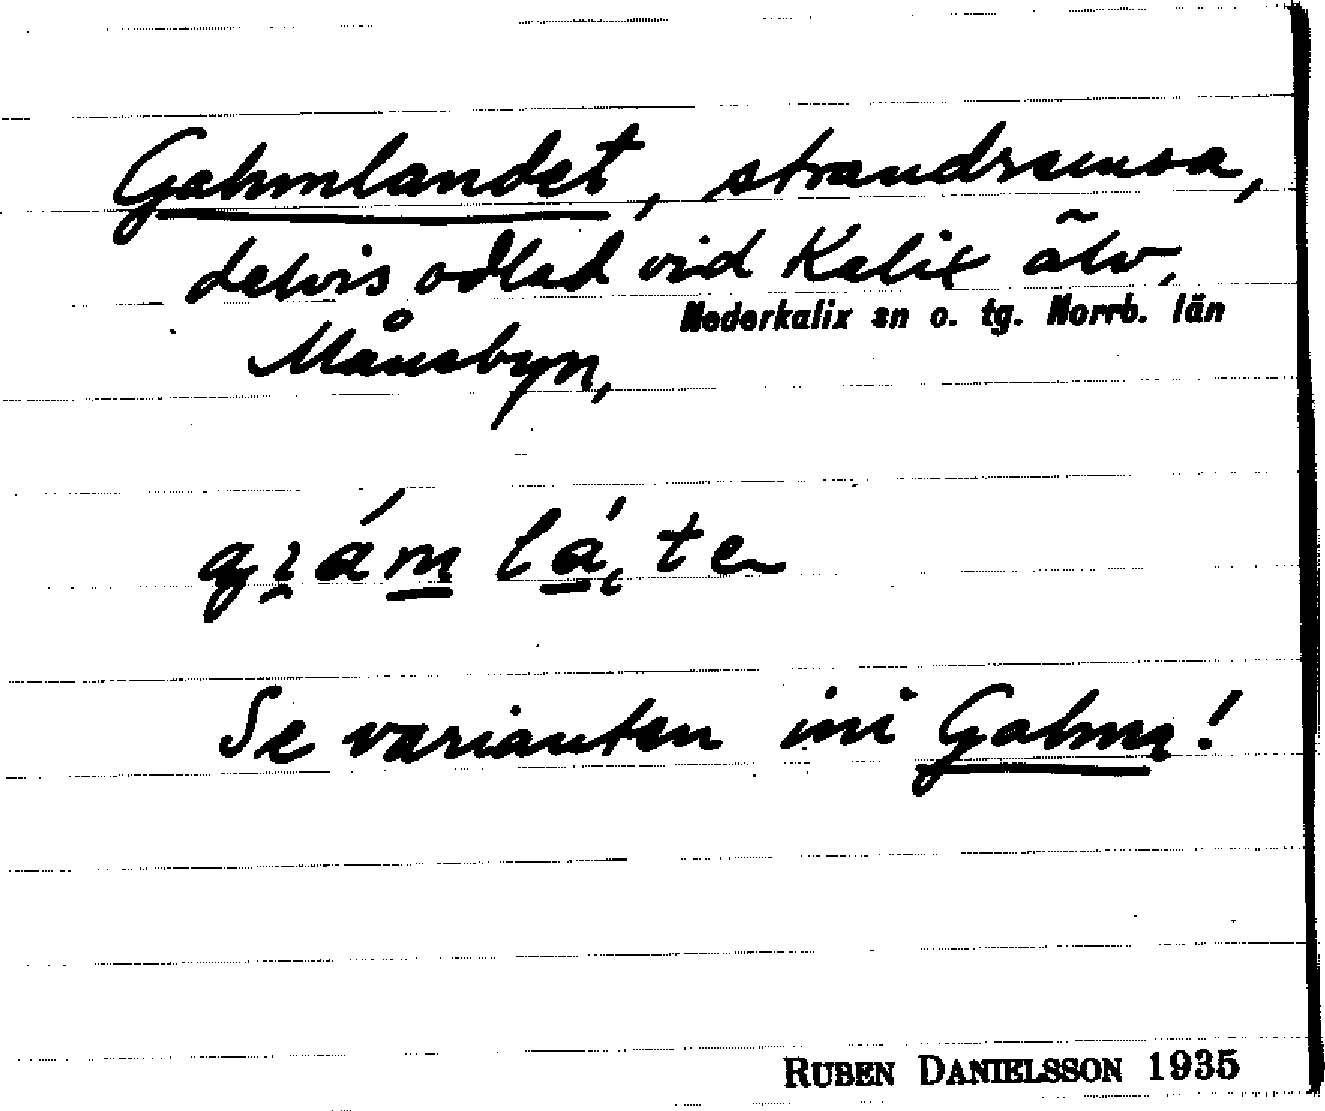 Gahmlandet, strandremsa,
delvis odlad vid Kalix älv,
Nederkalix sn o. tg. Norrb. län
Månsbyn,
Se varianten ini Gahm!
RUBEN DANIELSSON 1935